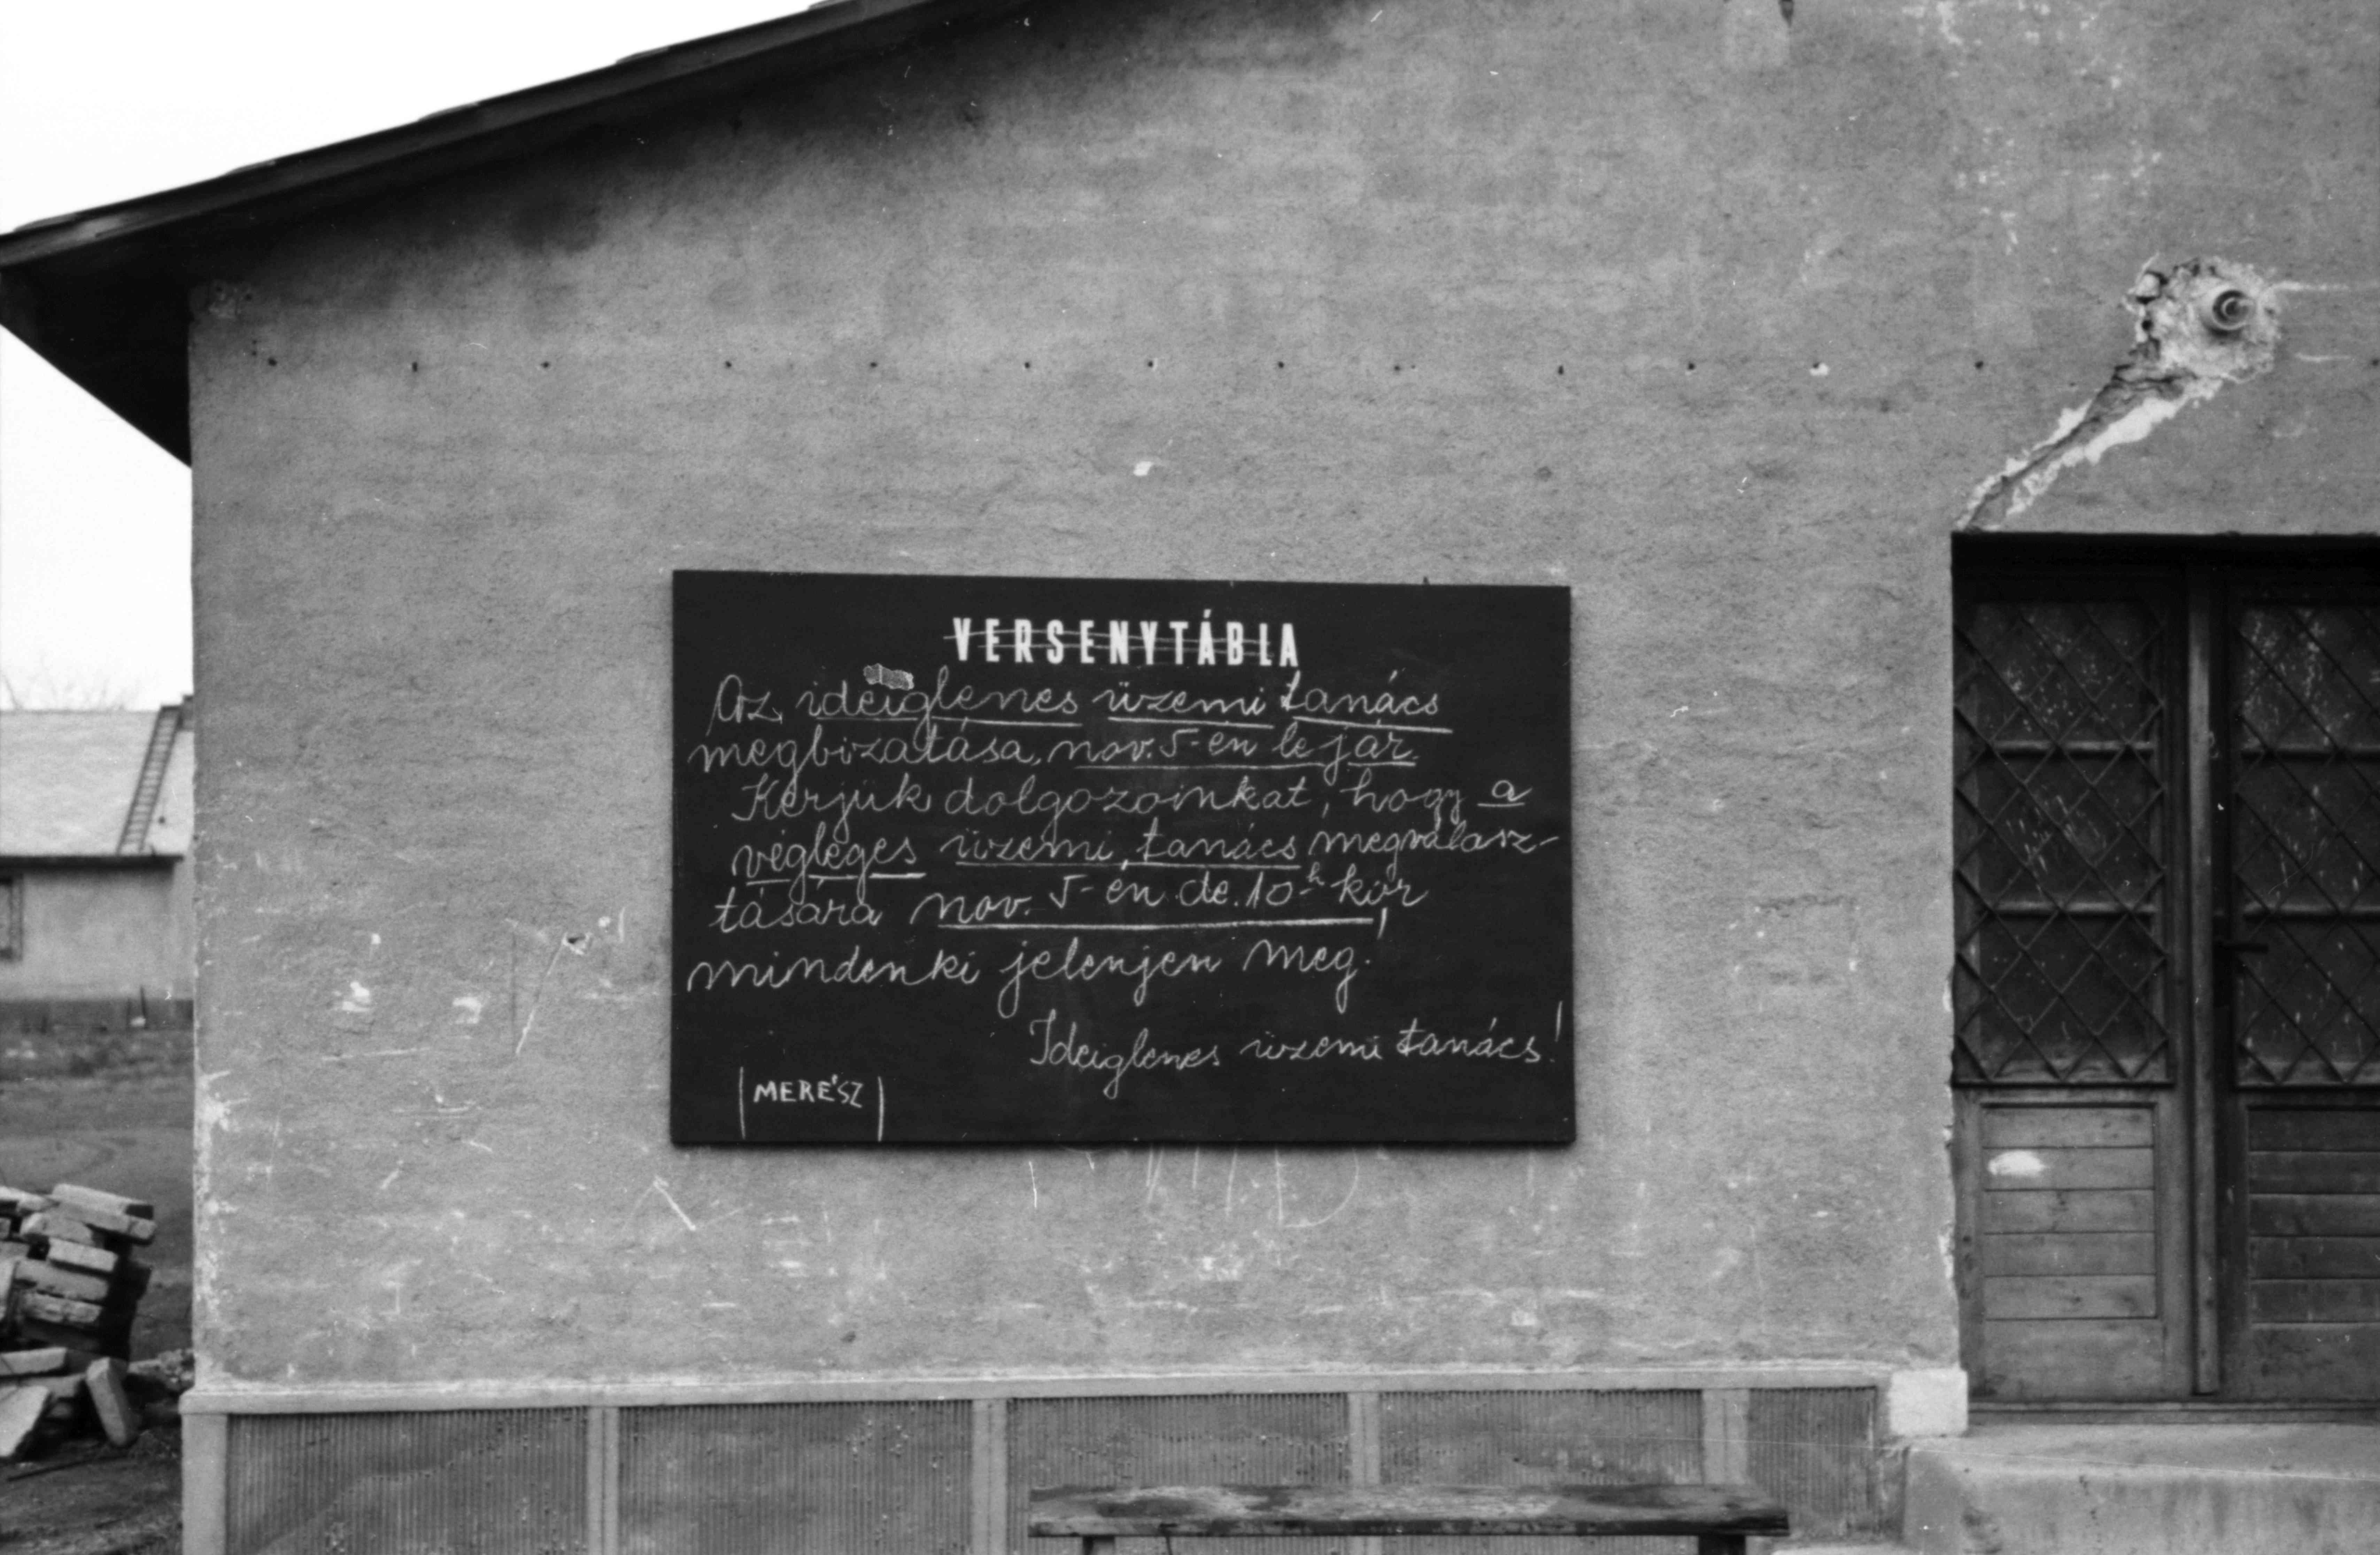 VERSENYTÁBLA
Az ideiglenes üzemi tanács
megbizatása nov. 5-én lejár.
Kérjük dolgozóinkat, hogy a
végleges üzemi tanács megválasz-
tására nov. 5-én de. 10ʰ-kor
mindenki jelenjen meg!
Ideiglenes üzemi tanács!
MERÉSZ